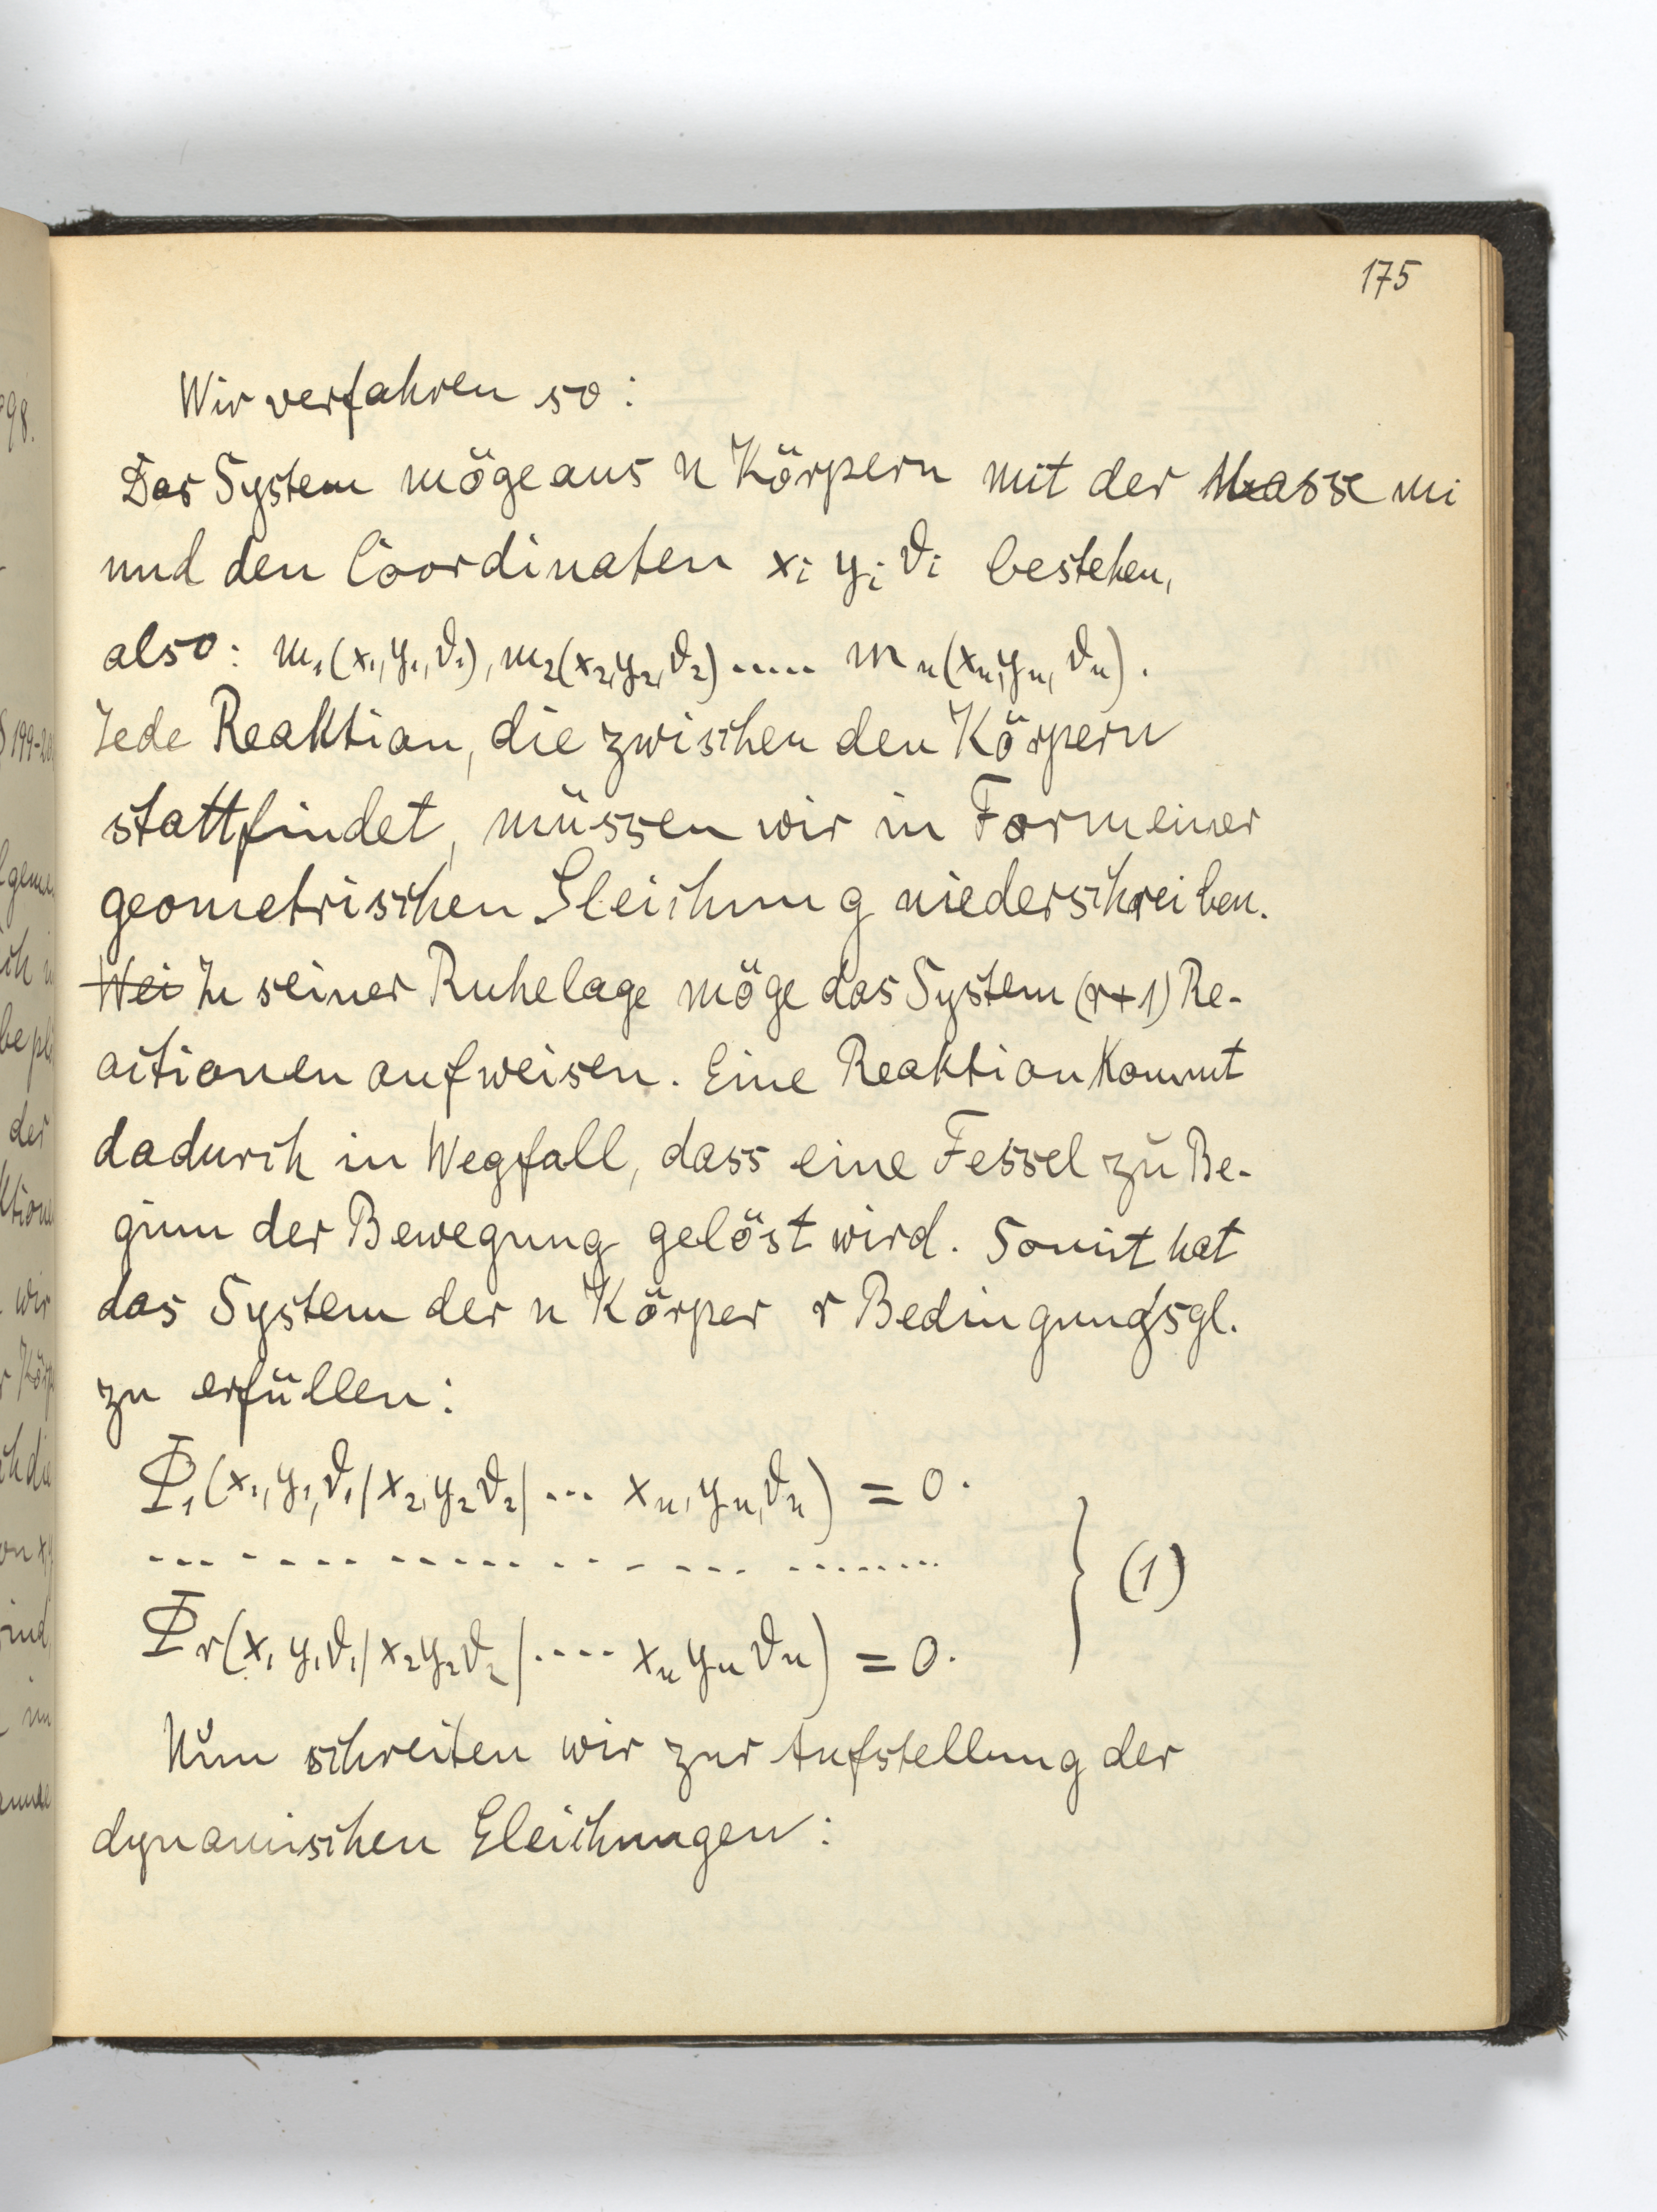 175
Wir verfahren so:
Das System möge aus n Körpern mit der Masse mi
und den Coordinaten xi yi ϑi bestehen,
also: m₁(x₁,y₁,ϑ₁), m₂(x₂,y₂,ϑ₂)..... mn(xn,yn,ϑn).
Jede Reaktion, die zwischen den Körpern
stattfindet, müssen wir in Form einer
geometrischen Gleichung niederschreiben.
Wei In seiner Ruhelage möge das System (r+1) Re-
actionen aufweisen. Eine Reaktion kommt
dadurch in Wegfall, dass eine Fessel zŭ Be-
ginn der Bewegung gelöst wird. Somit hat
das System der n Körper r Bedingungsgl.
zu erfüllen:
Φ₁(x₁,y₁,ϑ₁/x₂,y₂ϑ₂/... xn,yn,ϑn) = 0.
--- - --- ----- -- - --- ........ } (1)
Φr(x₁ y₁ϑ₁/x₂y₂ϑ₂/.... xn yn ϑn) = 0.
Nŭn schreiten wir zur Aufstellung der
dynamischen Gleichungen:
98.
§199-20
der
wir